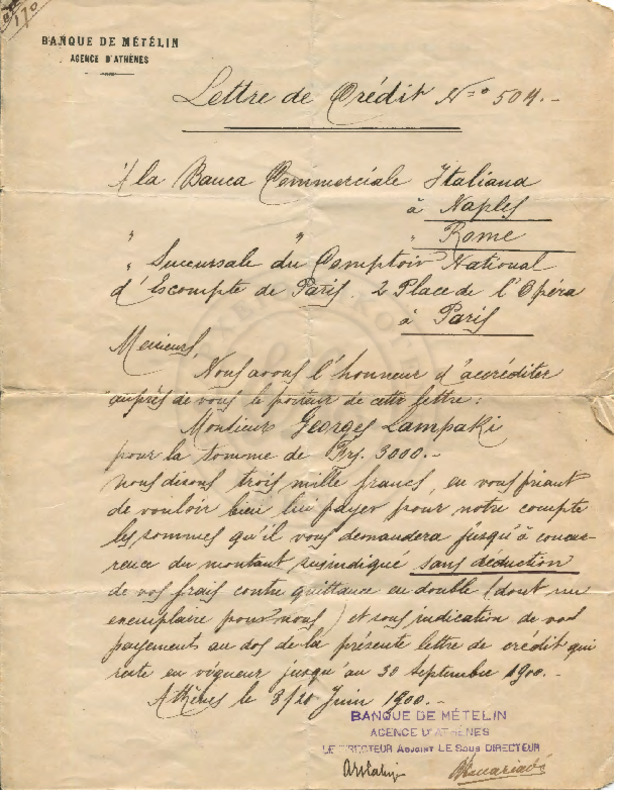 170
BANQUE DE MÉTÉLIN
AGENCE D'ATHÈNES
Lettre de Crédit No 504.-
À la Banca Commerciale Italiana
à Naples
" " " Rome
" Succursale du Comptoir National
d'Escompte de Paris. 2 Place de l'Opéra
à Paris
Messieurs,
Nous avons l'honneur d'accréditer
auprès de vous le porteur de cette lettre:
Monsieur Georges Lampaki
pour la somme de Frs. 3000.-
nous disons trois mille francs, en vous priant
de vouloir bien lui payer pour notre compte
les sommes qu'il vous demandera jusqu'à concur-
rence du montant susindiqué sans déduction
de vos frais contre quittance en double (dont un
exemplaire pour nous) et sous indication de vos
payements au dos de la présente lettre de crédit qui
reste en vigueur jusqu'au 30 Septembre 1900.-
Athènes le 8/20 Juin 1900.-
BANQUE DE MÉTELIN
AGENCE D'ATHÈNES
LE DIRECTEUR ADJOINT LE SOUS DIRECTEUR